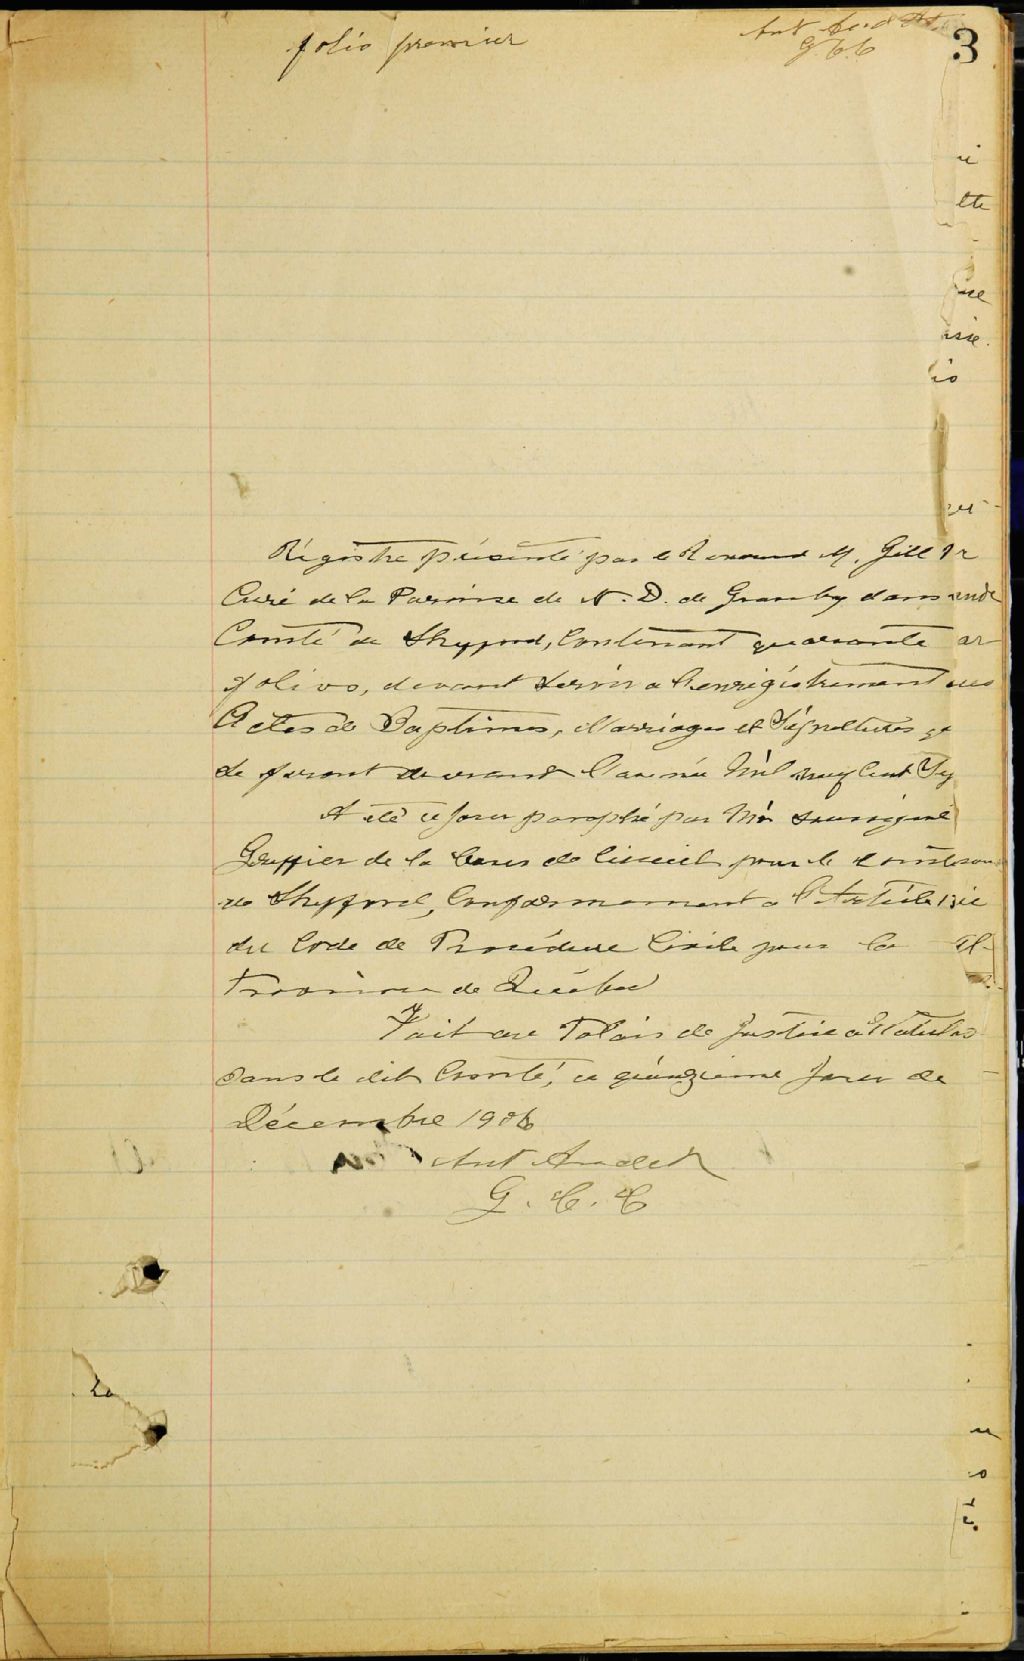 folio premier
Ant Audet
G. C. C
3
Régistre présenté par le Révérend M. Gill
Curé de la Paroisse de N. D. de Granby dans
Comté de Shefford, Contenant quarante
folios, devant servir a l'enrégistrement des
Actes de Baptêmes, Marriages et Sépultures
se feront durant l'année Mil neuf Cent Sep
A été ce jour paraphé par Moi soussigné
Greffier de la Cour de Circuit pour le Comté
de Shefford, Conformement a l'Article
du Code de Procédure Civile pour la
Province de Québec
Fait au Palais de Justice a Waterloo
dans le dit Comté, ce quinzième jour de
Décembre 1906
Ant Audet
G. C. C